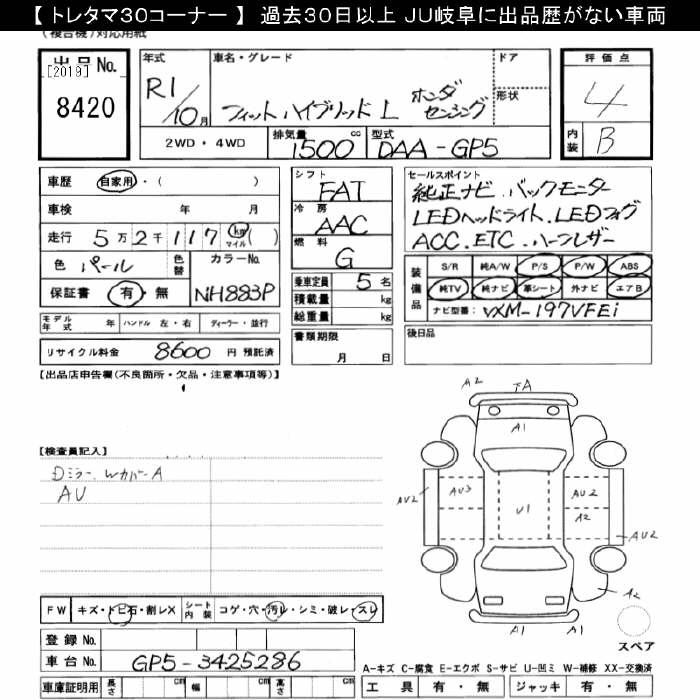 【 トレタマ30コーナー 】 過去30日以上 JU岐阜に出品歴がない車両
(複合機)対応用紙
出品No.
[2019]
8420
年式
R1/10月
車名・グレード
フィットハイブリッド L ホンダセンシング
ドア
形状
2WD・4WD
排気量 1500 cc
型式 DAA-GP5
評価点
4
内装 B
車歴 自家用・( )
車検 年 月
走行 5万2千117 km マイル( )
色 パール 色替 カラーNo. NH883P
保証書 有・無
シフト FAT
冷房 AAC
燃料 G
乗車定員 5名
積載量 kg
総重量 kg
セールスポイント
純正ナビ.バックモニター
LEDヘッドライト.LEDフォグ
ACC.ETC.ハーフレザー
装備品
S/R 純A/W P/S P/W ABS
純TV 純ナビ 革シート 外ナビ エアB
ナビ型番: VXM-197VFEi
モデル年式 年 ハンドル 左・右 ディーラー・並行
リサイクル料金 8600 円 預託済
書類期限
月 日
後日品
【出品店申告欄(不良箇所・欠品・注意事項等)】
【検査員記入】
Dミラー.Wカバー A
AU
A2
TA
A1
AU2
AU3
U1
AU2
A2
AU2
A2
A1
A1
スペア
FW キズ・トビ石・割レX シート内装 コゲ・穴・汚レ・シミ・破レ・スレ
登録No.
車台No. GP5-3425286
車庫証明用 長さ cm 幅 cm 高さ cm
A-キズ C-腐食 E-エクボ S-サビ U-凹ミ W-補修 XX-交換済
工具 有・無 ジャッキ 有・無